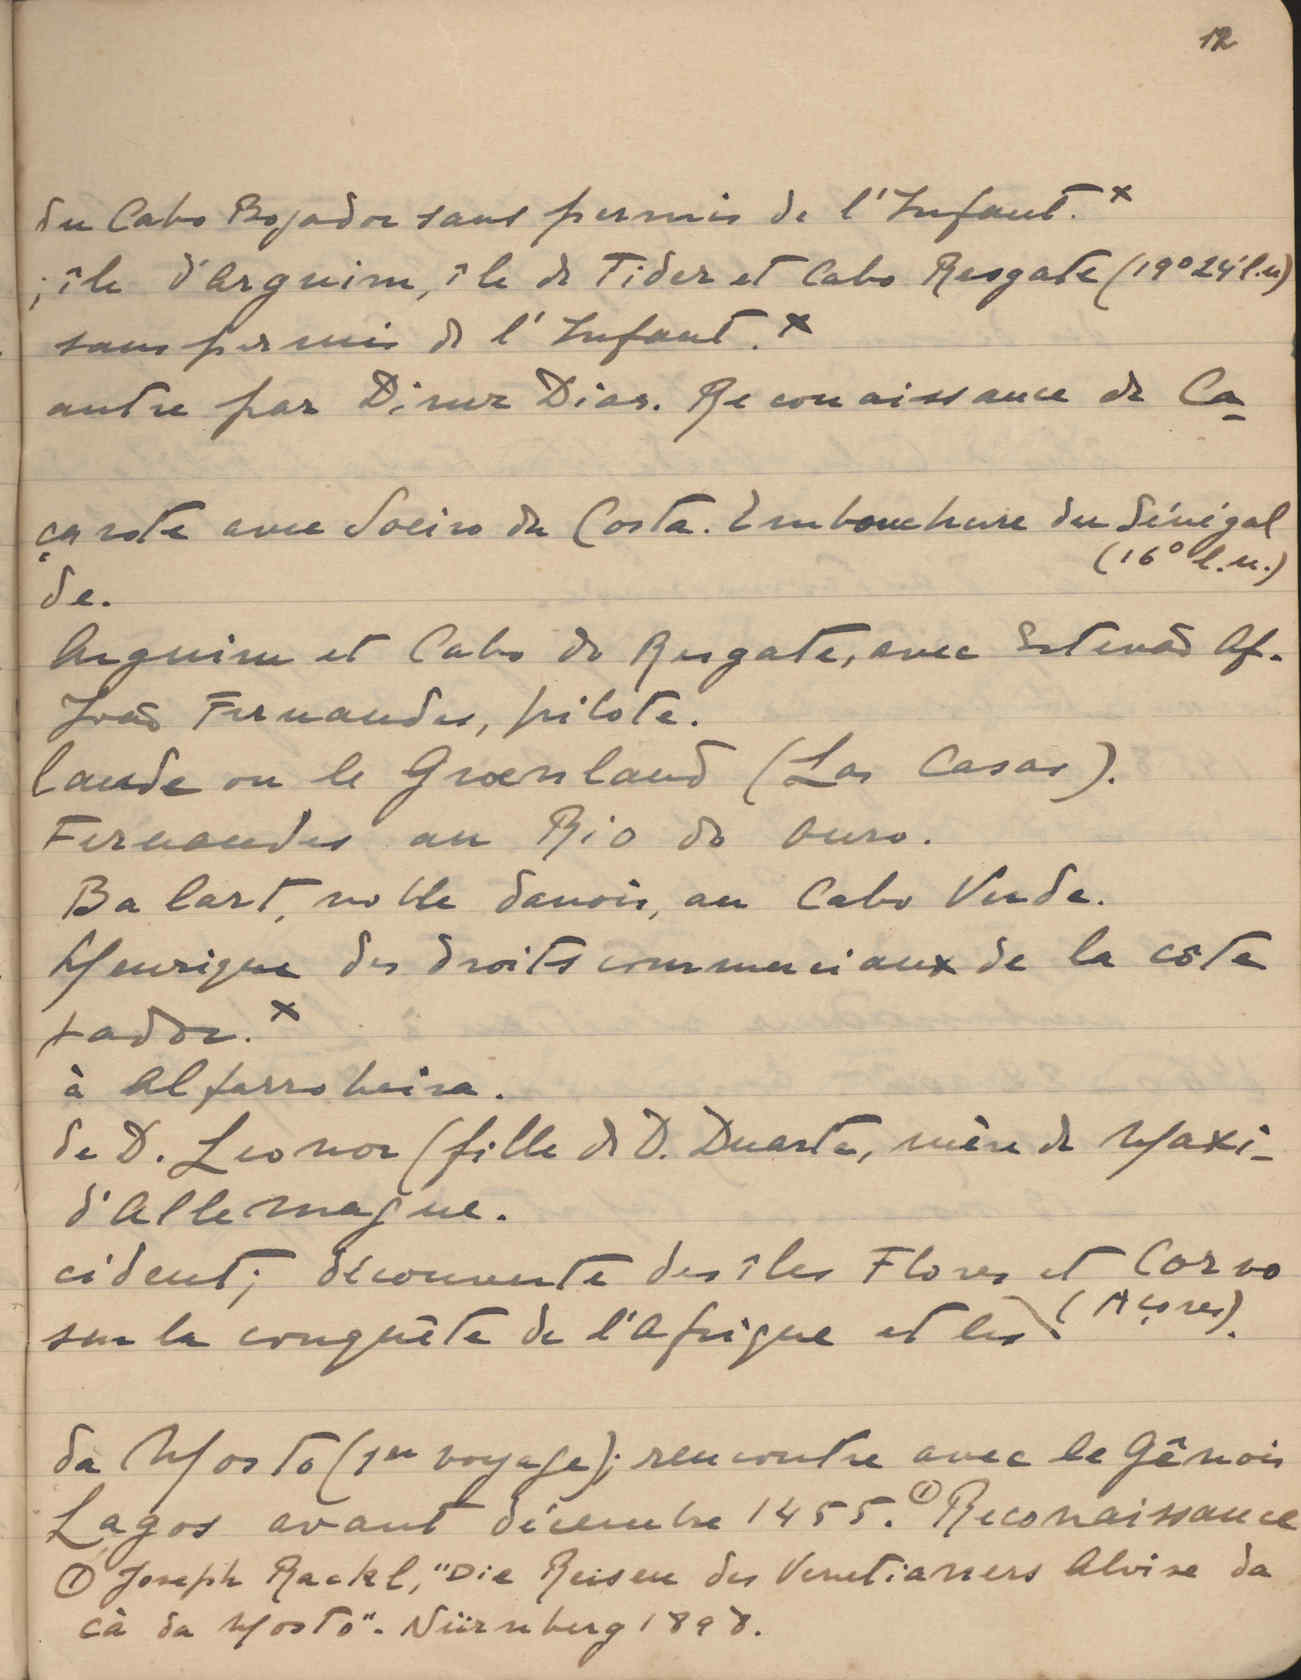 12
du Cabo Bojador sans permis de l'Infant.x
; île d'Arguim, île de Tider et Cabo Resgate (19° 24' l.n)
sans permis de l'Infant.x
autre par Diniz Dias. Reconaissance de Ca-
çarote avec Soeiro da Costa. Embouchure du Sénégal
(16° l.n.)
de.
Arguim et Cabo do Resgate, avec Estevão Af.
João Fernandes, pilote.
lande ou le Grœnland (Las Casas).
Fernandes au Rio do Ouro.
Balart, noble danois, au Cabo Verde.
Henrique des droits commerciaux de la côte
jador.x
à Alfarrobeira.
de D. Leonor (fille de D. Duarte, mère de Maxi-
d'Allemagne.
cident; découverte des îles Flores et Corvo
(Açores).
sur la conquête de l'Afrique et les
da Mosto (1er voyage); rencontre avec le Gênois
Lagos avant décembre 1455.① Reconaissance
① Joseph Rackl, "Die Reisen des Venetianers Alvise da
cà da Mosto". Nürnberg 1898.